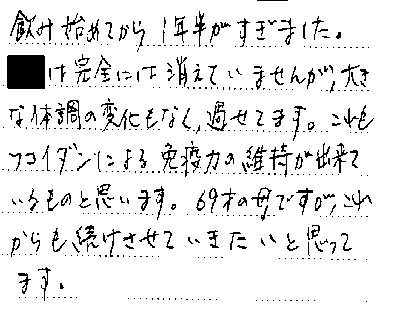 飲み始めてから1年半がすぎました。
は完全には消えていませんが、大き
な体調の変化もなく、過せてます。これも
フコイダンによる免疫力の維持が出来て
いるものと思います。69才の母ですが、これ
からも続けさせていきたいと思って
ます。